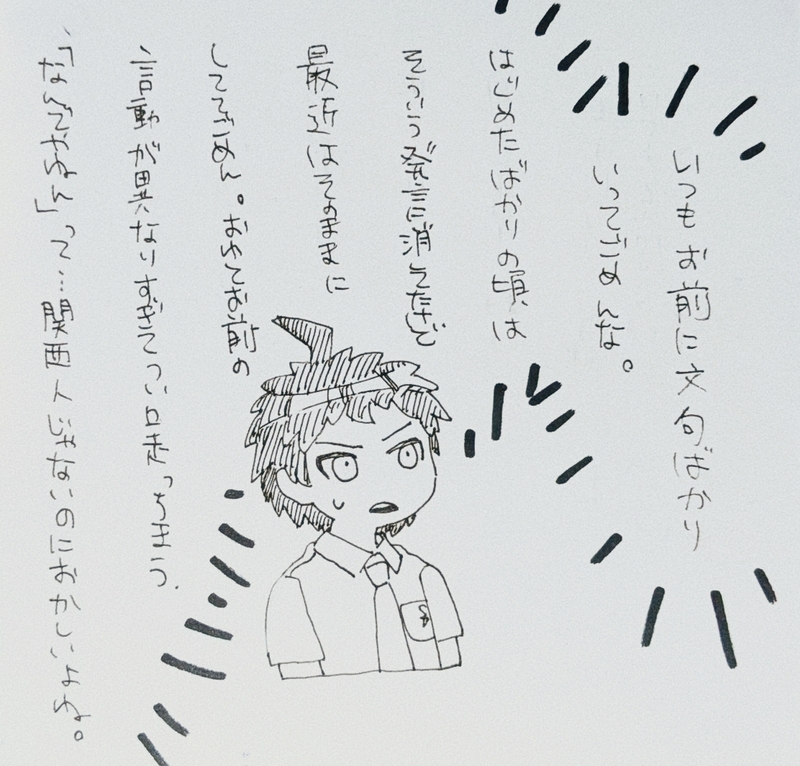 いつもお前に文句ばかり
いってごめんな。
はじめたばかりの頃は
そういう発言消してたけど
最近はそのままに
しててごめん。お前の
言動が異なりすぎてつい口走っちまう.
「なんでやねん」って…関西人じゃないのにおかしいよな。